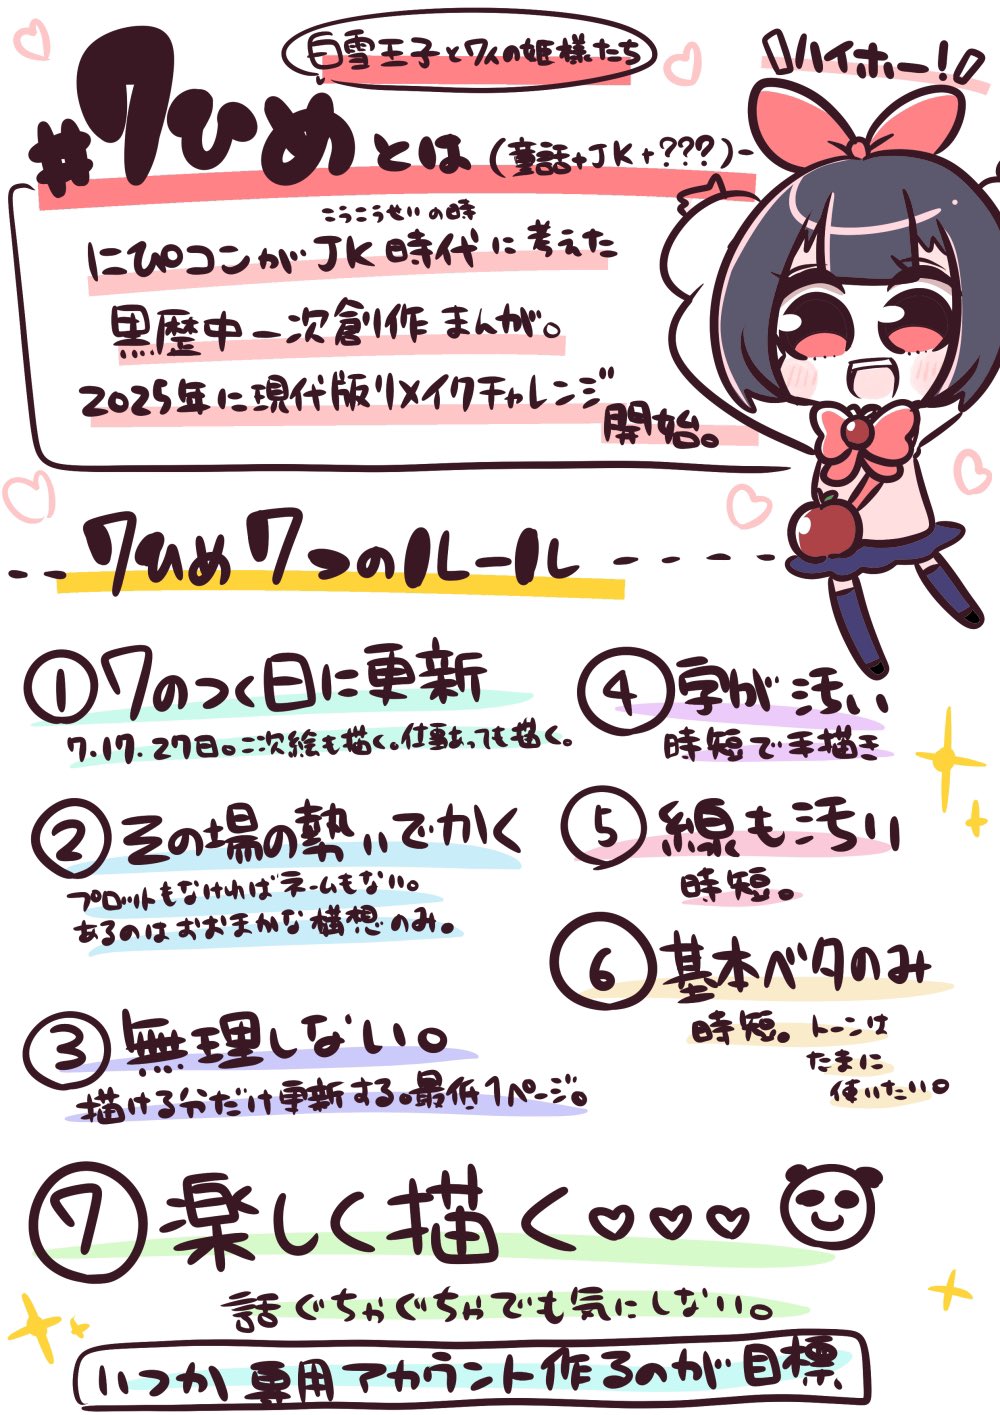 白雪王子と7人の姫様たち
ハイホー!
#7ひめとは(童話+JK+???)
こうこうせいの時
にぴコンがJK時代に考えた
黒歴中一次創作まんが。
2025年に現代版リメイクチャレンジ
開始。
7ひめ7つのルール
①7のつく日に更新
7.17.27日。二次絵も描く。仕事あっても描く。
②その場の勢いでかく
プロットもなければネームもない。
あるのはおおまかな構想のみ。
③無理しない。
描ける分だけ更新する。最低1ページ。
④字が汚い
時短で手描き
⑤線も汚い
時短。
⑥基本ベタのみ
時短。トーンは
たまに
使いたい。
⑦楽しく描く♡♡♡
話ぐちゃぐちゃでも気にしない。
いつか専用アカウント作るのが目標